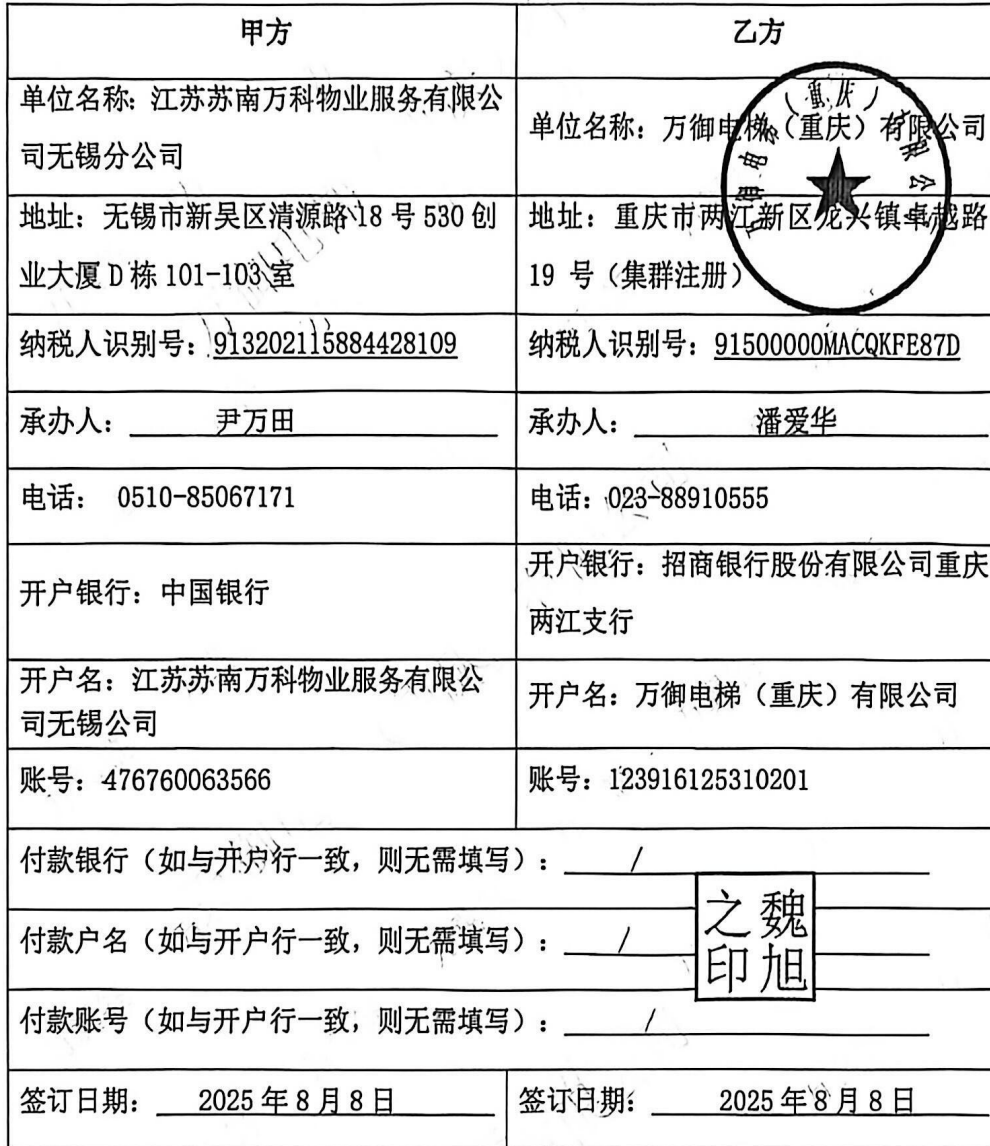 甲方
乙方
单位名称：江苏苏南万科物业服务有限公
司无锡分公司
单位名称：万御电梯（重庆）有限公司
地址：无锡市新吴区清源路 18 号 530 创
业大厦 D 栋 101-103 室
地址：重庆市两江新区龙兴镇卓越路
19 号（集群注册）
纳税人识别号：913202115884428109
纳税人识别号：91500000MACQKFE87D
承办人：尹万田
承办人：潘爱华
电话： 0510-85067171
电话：023-88910555
开户银行：中国银行
开户银行：招商银行股份有限公司重庆
两江支行
开户名：江苏苏南万科物业服务有限公
司无锡公司
开户名：万御电梯（重庆）有限公司
账号：476760063566
账号：123916125310201
付款银行（如与开户行一致，则无需填写）： /
付款户名（如与开户行一致，则无需填写）： /
付款账号（如与开户行一致，则无需填写）： /
魏旭
之印
签订日期： 2025 年 8 月 8 日
签订日期： 2025 年 8 月 8 日